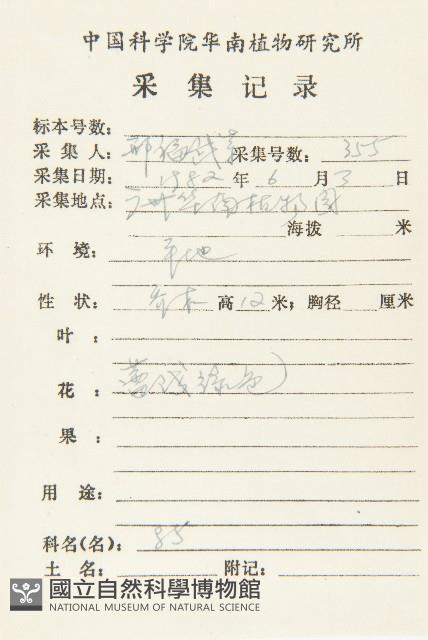 中国科学院华南植物研究所
采集记录
标本号数:
采集人: 邓 采集号数: 355
采集日期: 1982 年 6 月 3 日
采集地点: 广州华南植物园
海拨 米
环境: 平地
性状: 乔木 高 12 米; 胸径 厘米
叶:
花: 蕾浅绿色
果:
用途:
科名(名): 85
土名: 附记:
國立自然科學博物館
NATIONAL MUSEUM OF NATURAL SCIENCE